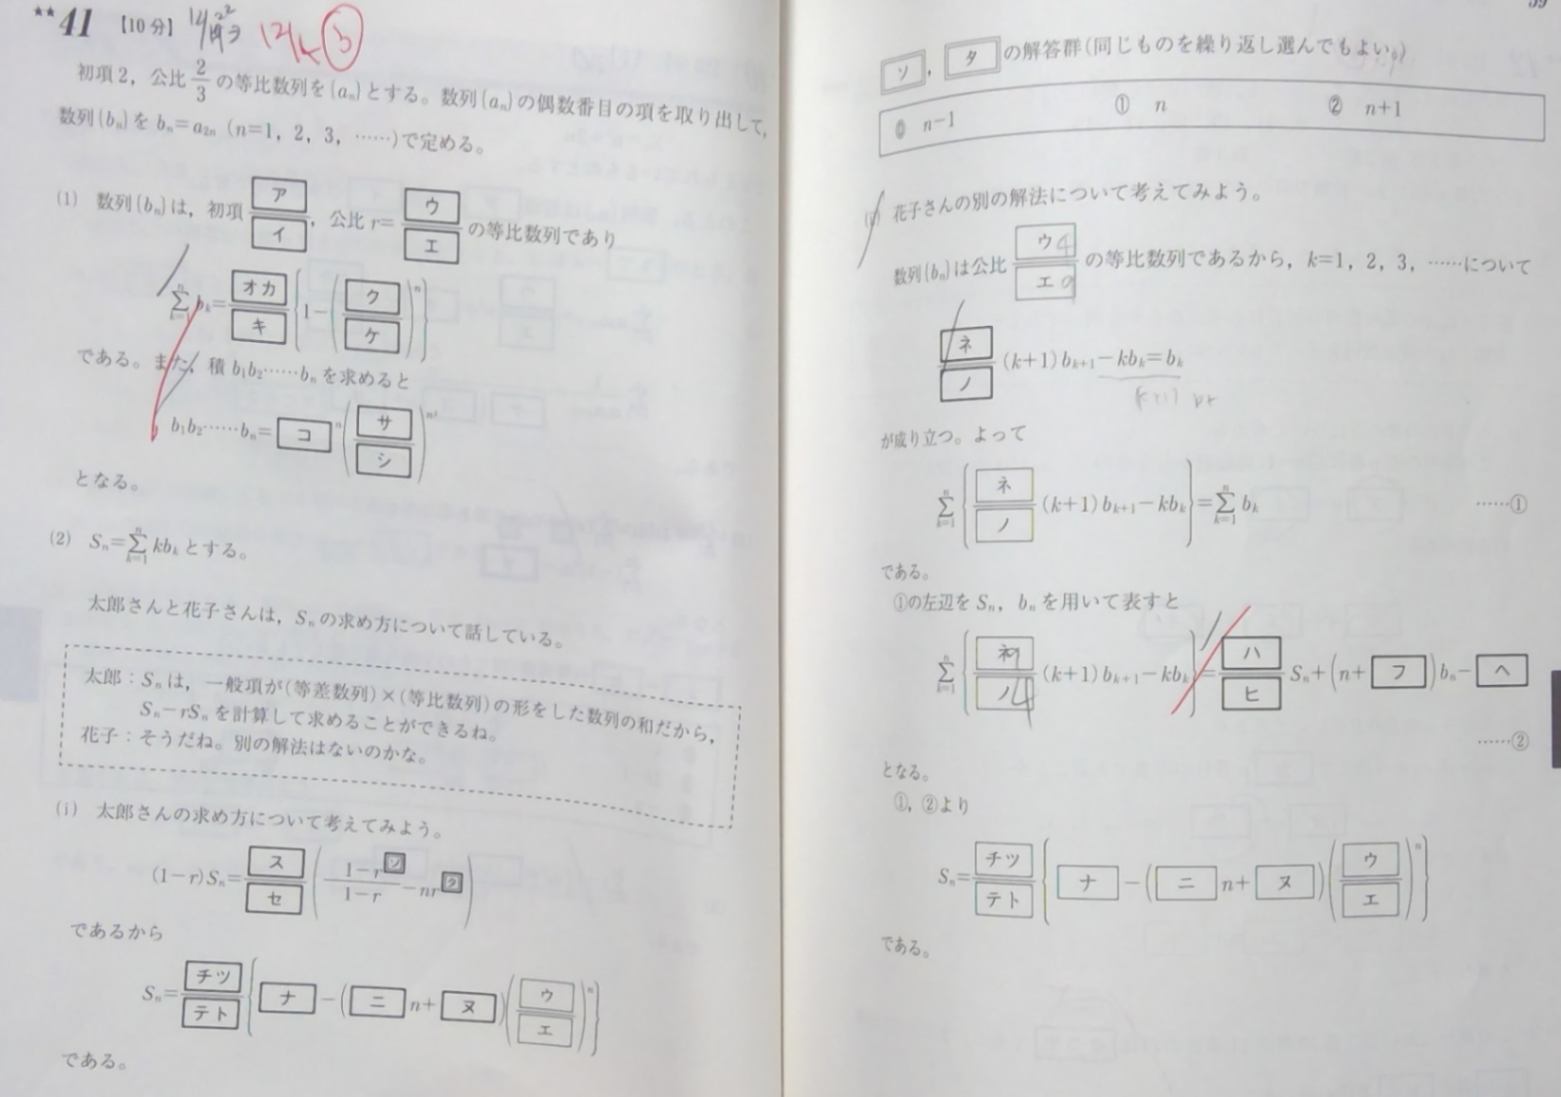 ★★41 【10分】
初項2，公比2/3の等比数列を{aₙ}とする。数列{aₙ}の偶数番目の項を取り出して，
数列{bₙ}を bₙ=a₂ₙ (n=1，2，3，……)で定める。
(1) 数列{bₙ}は，初項 ア/イ ，公比 r= ウ/エ の等比数列であり
Σ[k=1→n] bₖ= オカ/キ {1−( ク/ケ )ⁿ}
である。また，積 b₁b₂……bₙ を求めると
b₁b₂……bₙ= コ ⁿ( サ/シ )ⁿ²
となる。
(2) Sₙ=Σ[k=1→n] kbₖ とする。
太郎さんと花子さんは，Sₙの求め方について話している。
太郎：Sₙは，一般項が(等差数列)×(等比数列)の形をした数列の和だから，
Sₙ−rSₙを計算して求めることができるね。
花子：そうだね。別の解法はないのかな。
(i) 太郎さんの求め方について考えてみよう。
(1−r)Sₙ= ス/セ ( (1−r^ソ)/(1−r) −nr^タ )
であるから
Sₙ= チツ/テト { ナ −( ニ n+ ヌ )( ウ/エ )ⁿ}
である。
ソ ， タ の解答群(同じものを繰り返し選んでもよい。)
⓪ n−1 ① n ② n+1
花子さんの別の解法について考えてみよう。
数列{bₙ}は公比 ウ4/エ9 の等比数列であるから，k=1，2，3，……について
ネ/ノ (k+1)bₖ₊₁−kbₖ=bₖ
が成り立つ。よって
Σ[k=1→n] { ネ/ノ (k+1)bₖ₊₁−kbₖ}=Σ[k=1→n] bₖ ……①
である。
①の左辺をSₙ，bₙを用いて表すと
Σ[k=1→n] { ネ9/ノ4 (k+1)bₖ₊₁−kbₖ}= ハ/ヒ Sₙ+(n+ フ )bₙ− ヘ
……②
となる。
①，②より
Sₙ= チツ/テト { ナ −( ニ n+ ヌ )( ウ/エ )ⁿ}
である。